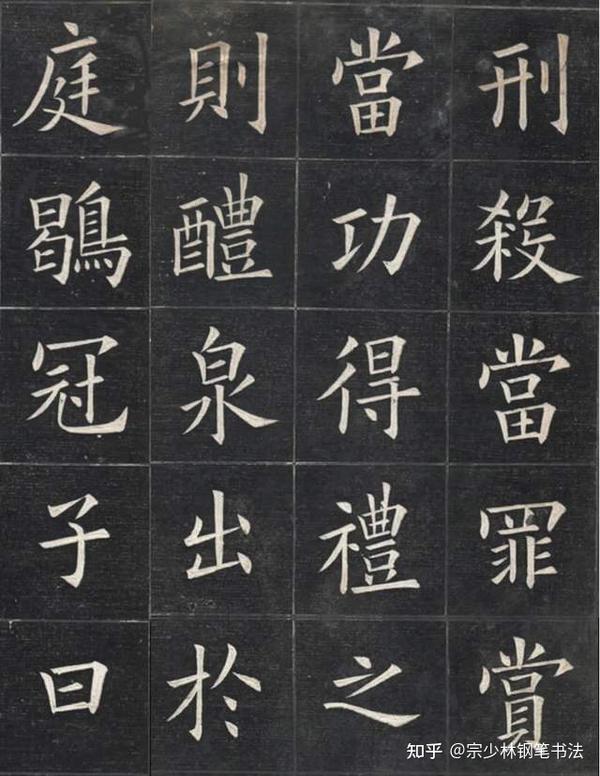 刑殺當罪賞
當功得禮之
則醴泉出於
庭鶡冠子曰
知乎 @宗少林钢笔书法